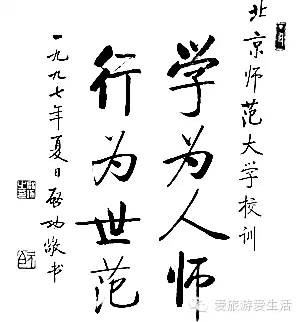 北京师范大学校训
学为人师
行为世范
一九九七年夏日启功敬书
爱旅游爱生活